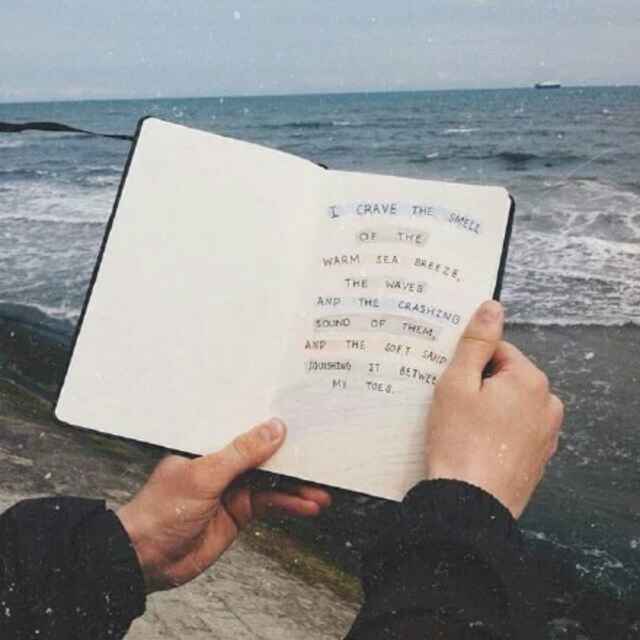 I CRAVE THE SMELL
OF THE
WARM SEA BREEZE,
THE WAVES
AND THE CRASHING
SOUND OF THEM,
AND THE SOFT SAND
SQUISHING IT BETWEE
MY TOES.